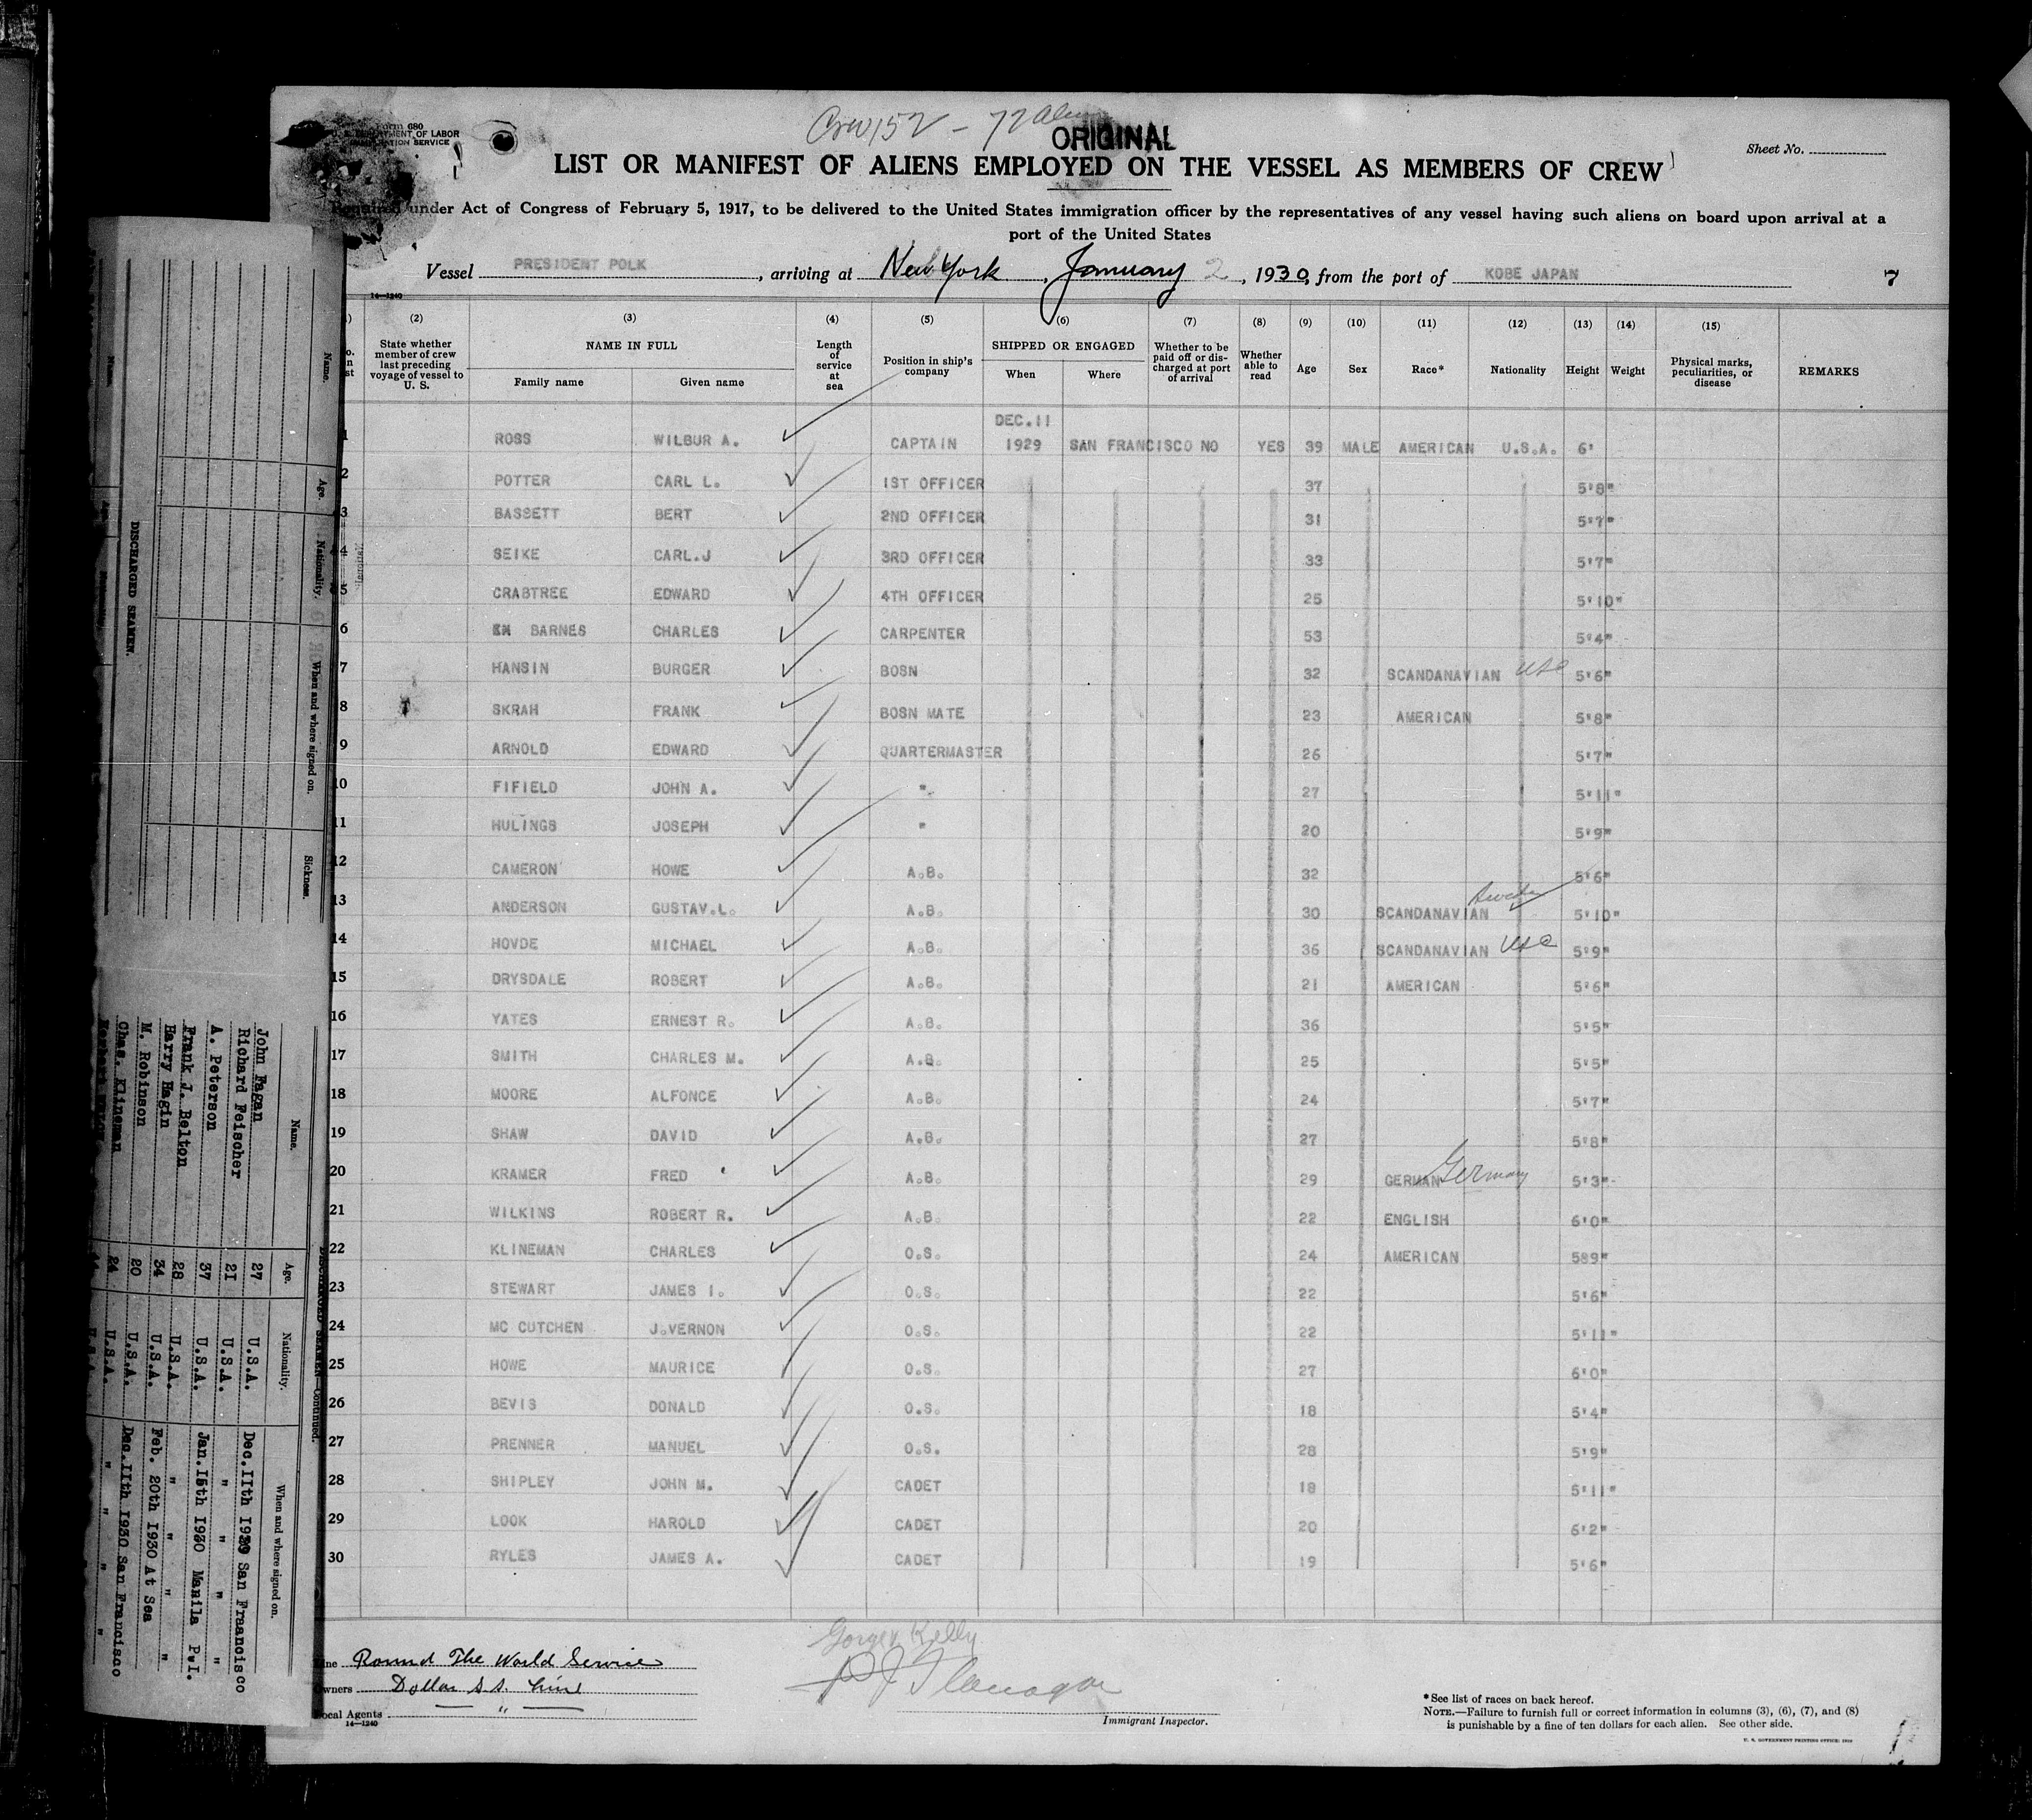 Crew 152 - 72 alien
ORIGINAL
Form 680
U. S. DEPARTMENT OF LABOR
IMMIGRATION SERVICE
Sheet No.
LIST OR MANIFEST OF ALIENS EMPLOYED ON THE VESSEL AS MEMBERS OF CREW
Required under Act of Congress of February 5, 1917, to be delivered to the United States immigration officer by the representatives of any vessel having such aliens on board upon arrival at a
port of the United States
Vessel PRESIDENT POLK, arriving at New York, January 2, 1930, from the port of KOBE JAPAN 7
14—1240
(2) (3) (4) (5) (6) (7) (8) (9) (10) (11) (12) (13) (14) (15)
State whether member of crew last preceding voyage of vessel to U. S. NAME IN FULL Family name Given name Length of service at sea Position in ship's company SHIPPED OR ENGAGED When Where Whether to be paid off or discharged at port of arrival Whether able to read Age Sex Race* Nationality Height Weight Physical marks, peculiarities, or disease REMARKS
DEC.11
1 ROSS WILBUR A. CAPTAIN 1929 SAN FRANCISCO NO YES 39 MALE AMERICAN U.S.A. 6'
2 POTTER CARL L. 1ST OFFICER 37 5'8"
3 BASSETT BERT 2ND OFFICER 31 5'7"
4 SEIKE CARL.J 3RD OFFICER 33 5'7"
5 CRABTREE EDWARD 4TH OFFICER 25 5'10"
6 BARNES CHARLES CARPENTER 53 5'4"
7 HANSIN BURGER BOSN 32 SCANDANAVIAN USC 5'6"
8 SKRAH FRANK BOSN MATE 23 AMERICAN 5'8"
9 ARNOLD EDWARD QUARTERMASTER 26 5'7"
10 FIFIELD JOHN A. " 27 5'11"
11 HULINGS JOSEPH " 20 5'9"
12 CAMERON HOWE A.B. 32 5'6"
13 ANDERSON GUSTAV.L. A.B. 30 SCANDANAVIAN 5'10"
14 HOVDE MICHAEL A.B. 36 SCANDANAVIAN USC 5'9"
15 DRYSDALE ROBERT A.B. 21 AMERICAN 5'6"
16 YATES ERNEST R. A.B. 36 5'5"
17 SMITH CHARLES M. A.B. 25 5'5"
18 MOORE ALFONCE A.B. 24 5'7"
19 SHAW DAVID A.B. 27 5'8"
20 KRAMER FRED A.B. 29 GERMAN Germany 5'3"
21 WILKINS ROBERT R. A.B. 22 ENGLISH 6'0"
22 KLINEMAN CHARLES O.S. 24 AMERICAN 589"
23 STEWART JAMES I. O.S. 22 5'6"
24 MC CUTCHEN J.VERNON O.S. 22 5'11"
25 HOWE MAURICE O.S. 27 6'0"
26 BEVIS DONALD O.S. 18 5'4"
27 PRENNER MANUEL O.S. 28 5'9"
28 SHIPLEY JOHN M. CADET 18 5'11"
29 LOOK HAROLD CADET 20 6'2"
30 RYLES JAMES A. CADET 19 5'6"
Line Round The World Service
Owners Dollar S.S. Line
Local Agents "
14—1240
P J Flanagan
Immigrant Inspector.
*See list of races on back hereof.
NOTE.—Failure to furnish full or correct information in columns (3), (6), (7), and (8)
is punishable by a fine of ten dollars for each alien. See other side.
U. S. GOVERNMENT PRINTING OFFICE
DISCHARGED SEAMEN.
Name. Age. Nationality. When and where signed on. Sickness.
DISCHARGED SEAMEN—Continued.
Name. Age. Nationality. When and where signed on.
John Fagan 27 U.S.A. Dec.11th 1929 San Francisco
Richard Feischer 21 U.S.A. " " "
A. Peterson 37 U.S.A. Jan.15th 1930 Manila P.I.
Frank J. Belton 28 U.S.A. " " "
Harry Hagin 34 U.S.A. Feb. 20th 1930 At Sea
M. Robinson 20 U.S.A. Dec.11th 1930 San Francisco
Chas. Klineman 24 U.S.A. " " "